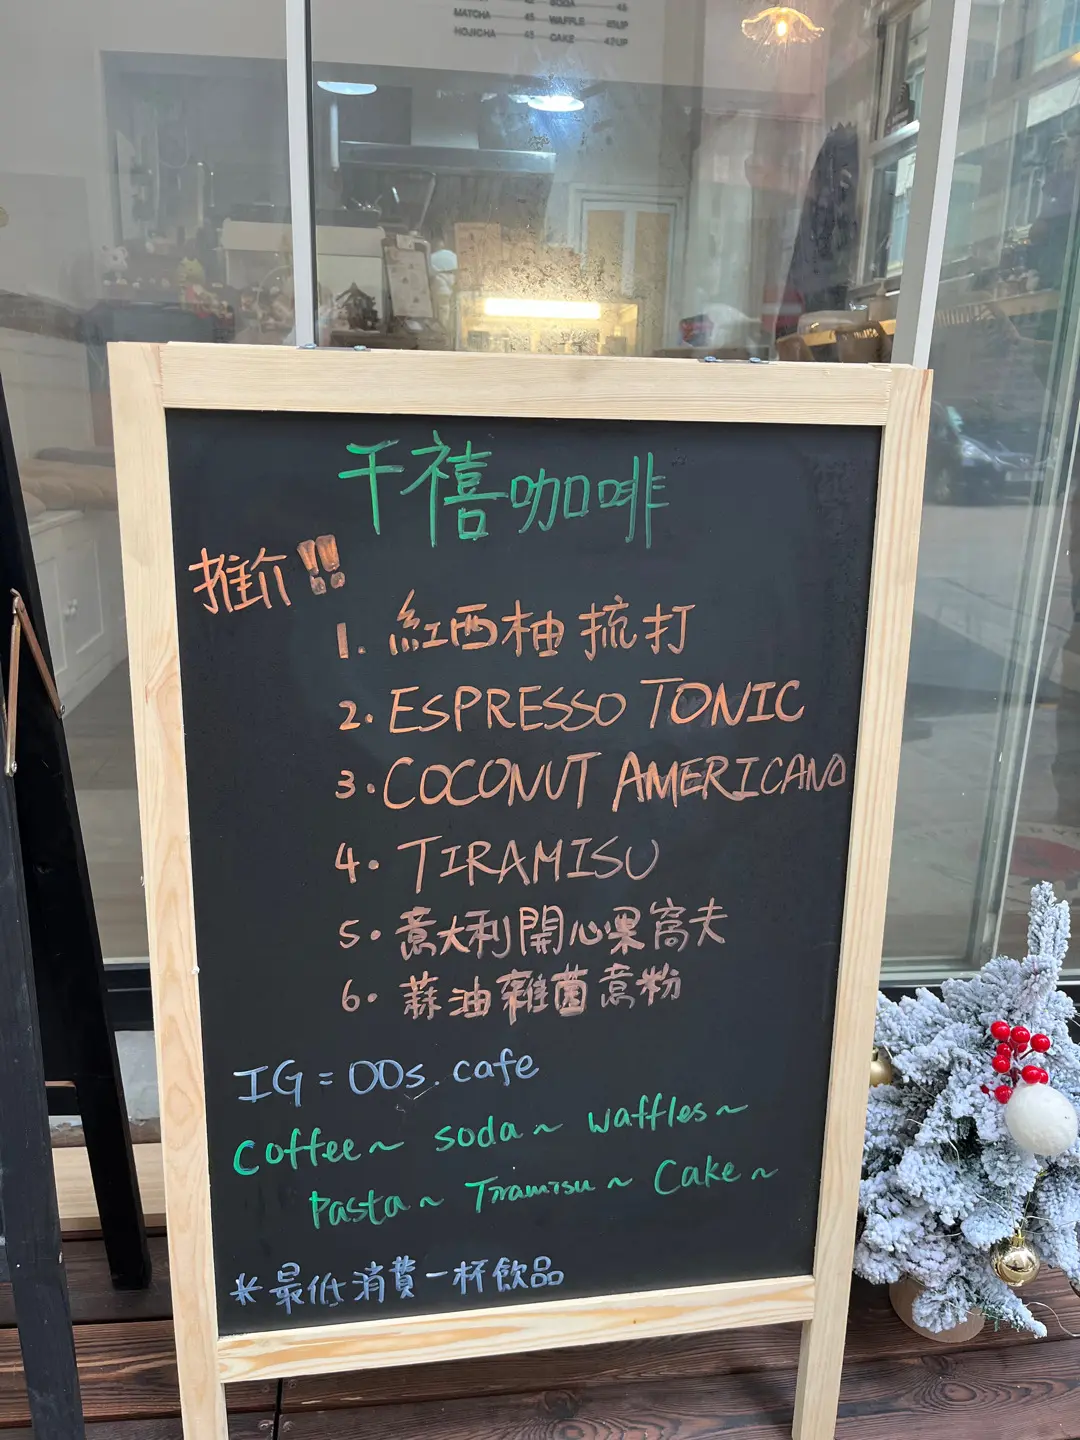 SODA 45
MATCHA 45 WAFFLE 45UP
HOJICHA 45 CAKE 47UP
千禧咖啡
推介!!
1. 紅西柚梳打
2. ESPRESSO TONIC
3. COCONUT AMERICANO
4. TIRAMISU
5. 意大利開心果窩夫
6. 蒜油雜菌意粉
IG = 00s.cafe
Coffee~ soda~ Waffles~
Pasta~ Tiramisu~ Cake~
*最低消費一杯飲品